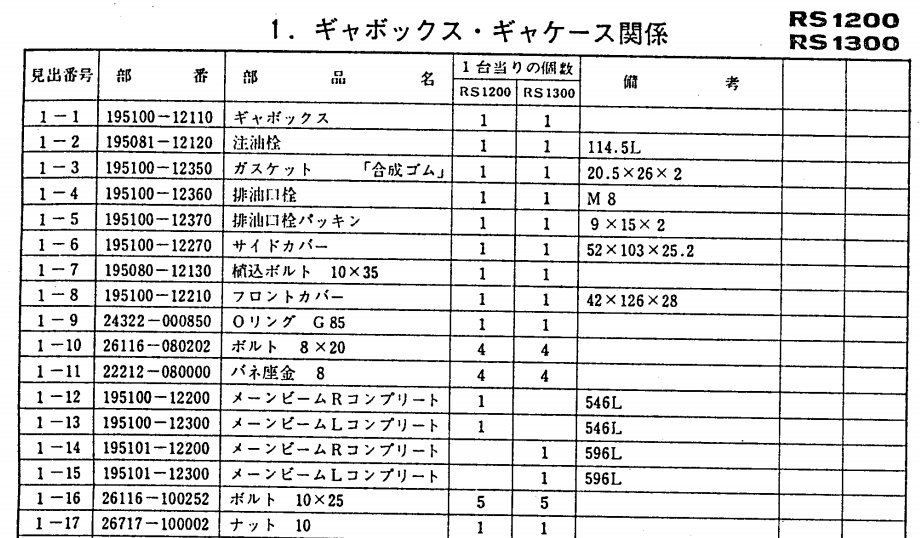 1. ギャボックス・ギャケース関係
RS1200
RS1300
見出番号 部番 部品名 1台当りの個数 備考
RS1200 RS1300
1－1 195100－12110 ギャボックス 1 1
1－2 195081－12120 注油栓 1 1 114.5L
1－3 195100－12350 ガスケット 「合成ゴム」 1 1 20.5×26×2
1－4 195100－12360 排油口栓 1 1 M8
1－5 195100－12370 排油口栓パッキン 1 1 9×15×2
1－6 195100－12270 サイドカバー 1 1 52×103×25.2
1－7 195080－12130 植込ボルト 10×35 1 1
1－8 195100－12210 フロントカバー 1 1 42×126×28
1－9 24322－000850 Oリング G85 1 1
1－10 26116－080202 ボルト 8×20 4 4
1－11 22212－080000 バネ座金 8 4 4
1－12 195100－12200 メーンビームRコンプリート 1 546L
1－13 195100－12300 メーンビームLコンプリート 1 546L
1－14 195101－12200 メーンビームRコンプリート 1 596L
1－15 195101－12300 メーンビームLコンプリート 1 596L
1－16 26116－100252 ボルト 10×25 5 5
1－17 26717－100002 ナット 10 1 1